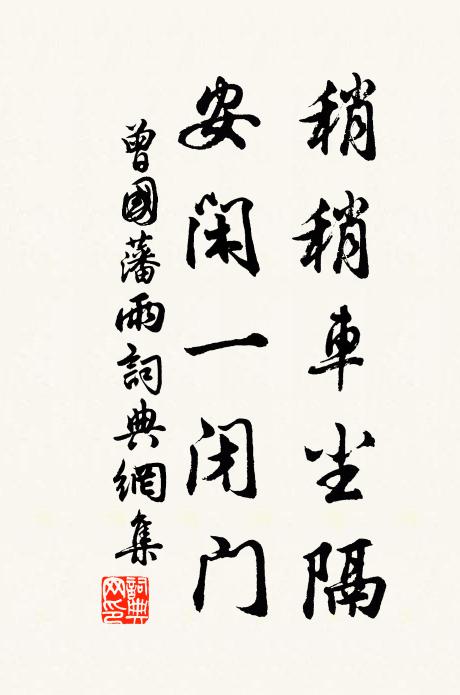 稍稍車尘隔
安闲一闭门
曾國藩雨詞典網集
詞典网印